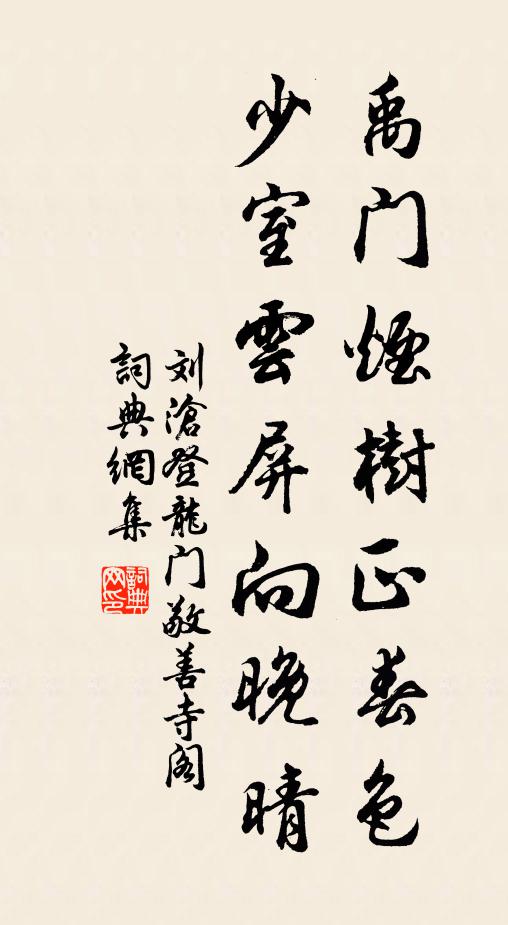 禹门煙樹正春色
少室雲屏向晚晴
刘滄登龍门敬善寺阁
詞典網集
詞典网印